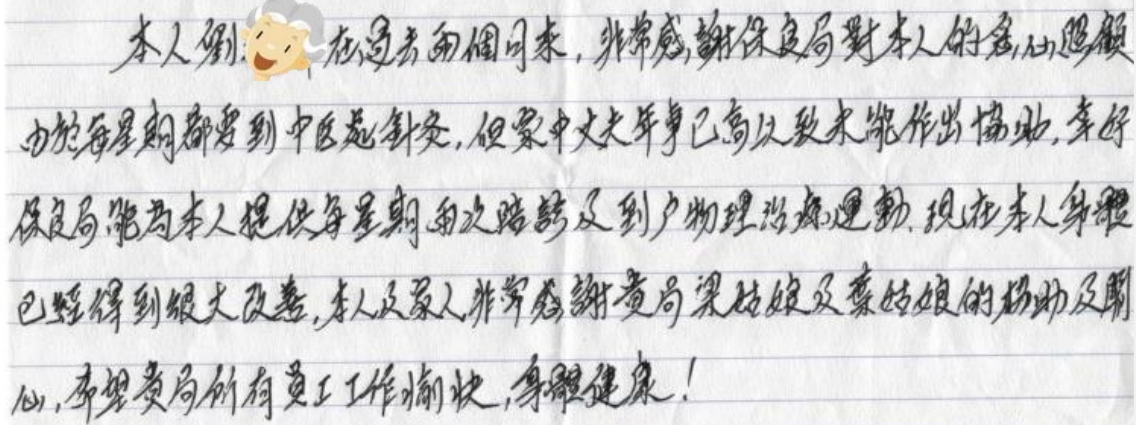 本人劉 在過去兩個月來，非常感謝保良局對本人的悉心照顧
由於每星期都要到中医處針灸，但家中丈夫年事已高以致未能作出協助，幸好
保良局能為本人提供每星期兩次陪診及到户物理治療運動，現在本人身體
已經得到很大改善，本人及家人非常感謝貴局梁姑娘及葉姑娘的協助及關
心，希望貴局所有員工工作愉快，身體健康！